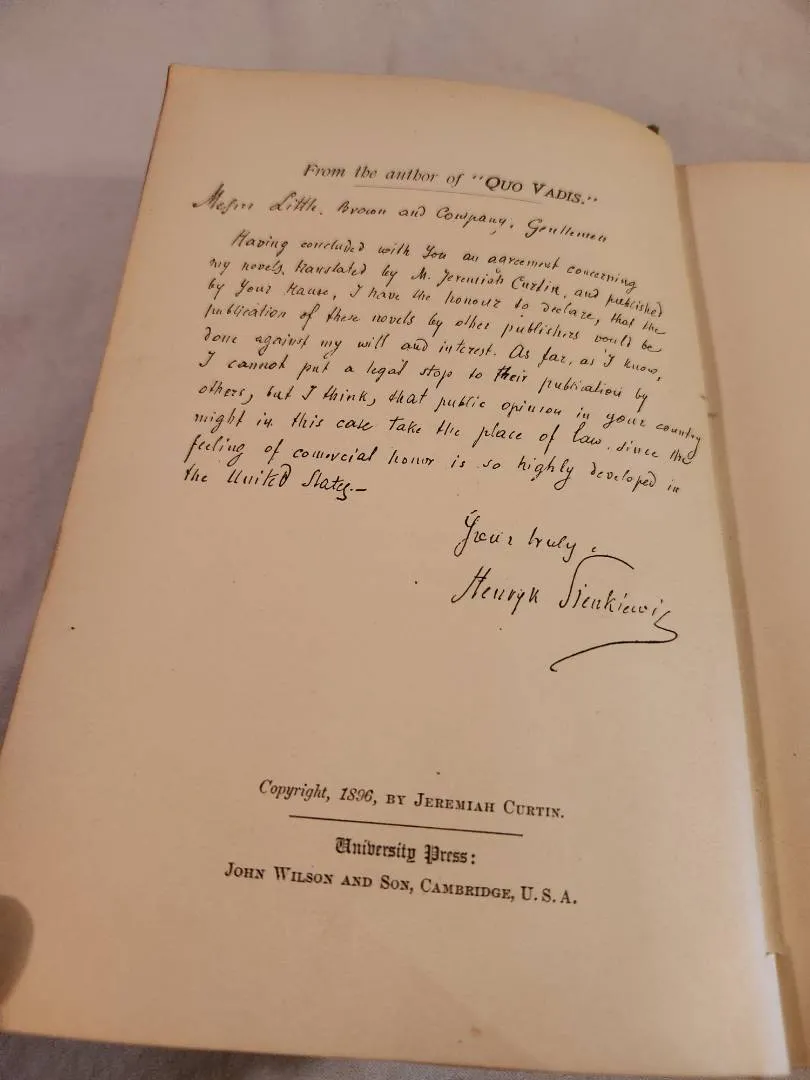 From the author of "QUO VADIS."
Messrs Little, Brown and Company, Gentlemen
Having concluded with You an agreement concerning
my novels, translated by M. Jeremiah Curtin, and published
by Your House, I have the honour to declare, that the
publication of these novels by other publishers would be
done against my will and interest. As far, as I know,
I cannot put a legal stop to their publication by
others, but I think, that public opinion in your country
might in this case take the place of law, since the
feeling of comercial honor is so highly developed in
the United States.—
Yours truly,
Henryk Sienkiewicz
Copyright, 1896, BY JEREMIAH CURTIN.
University Press:
JOHN WILSON AND SON, CAMBRIDGE, U.S.A.